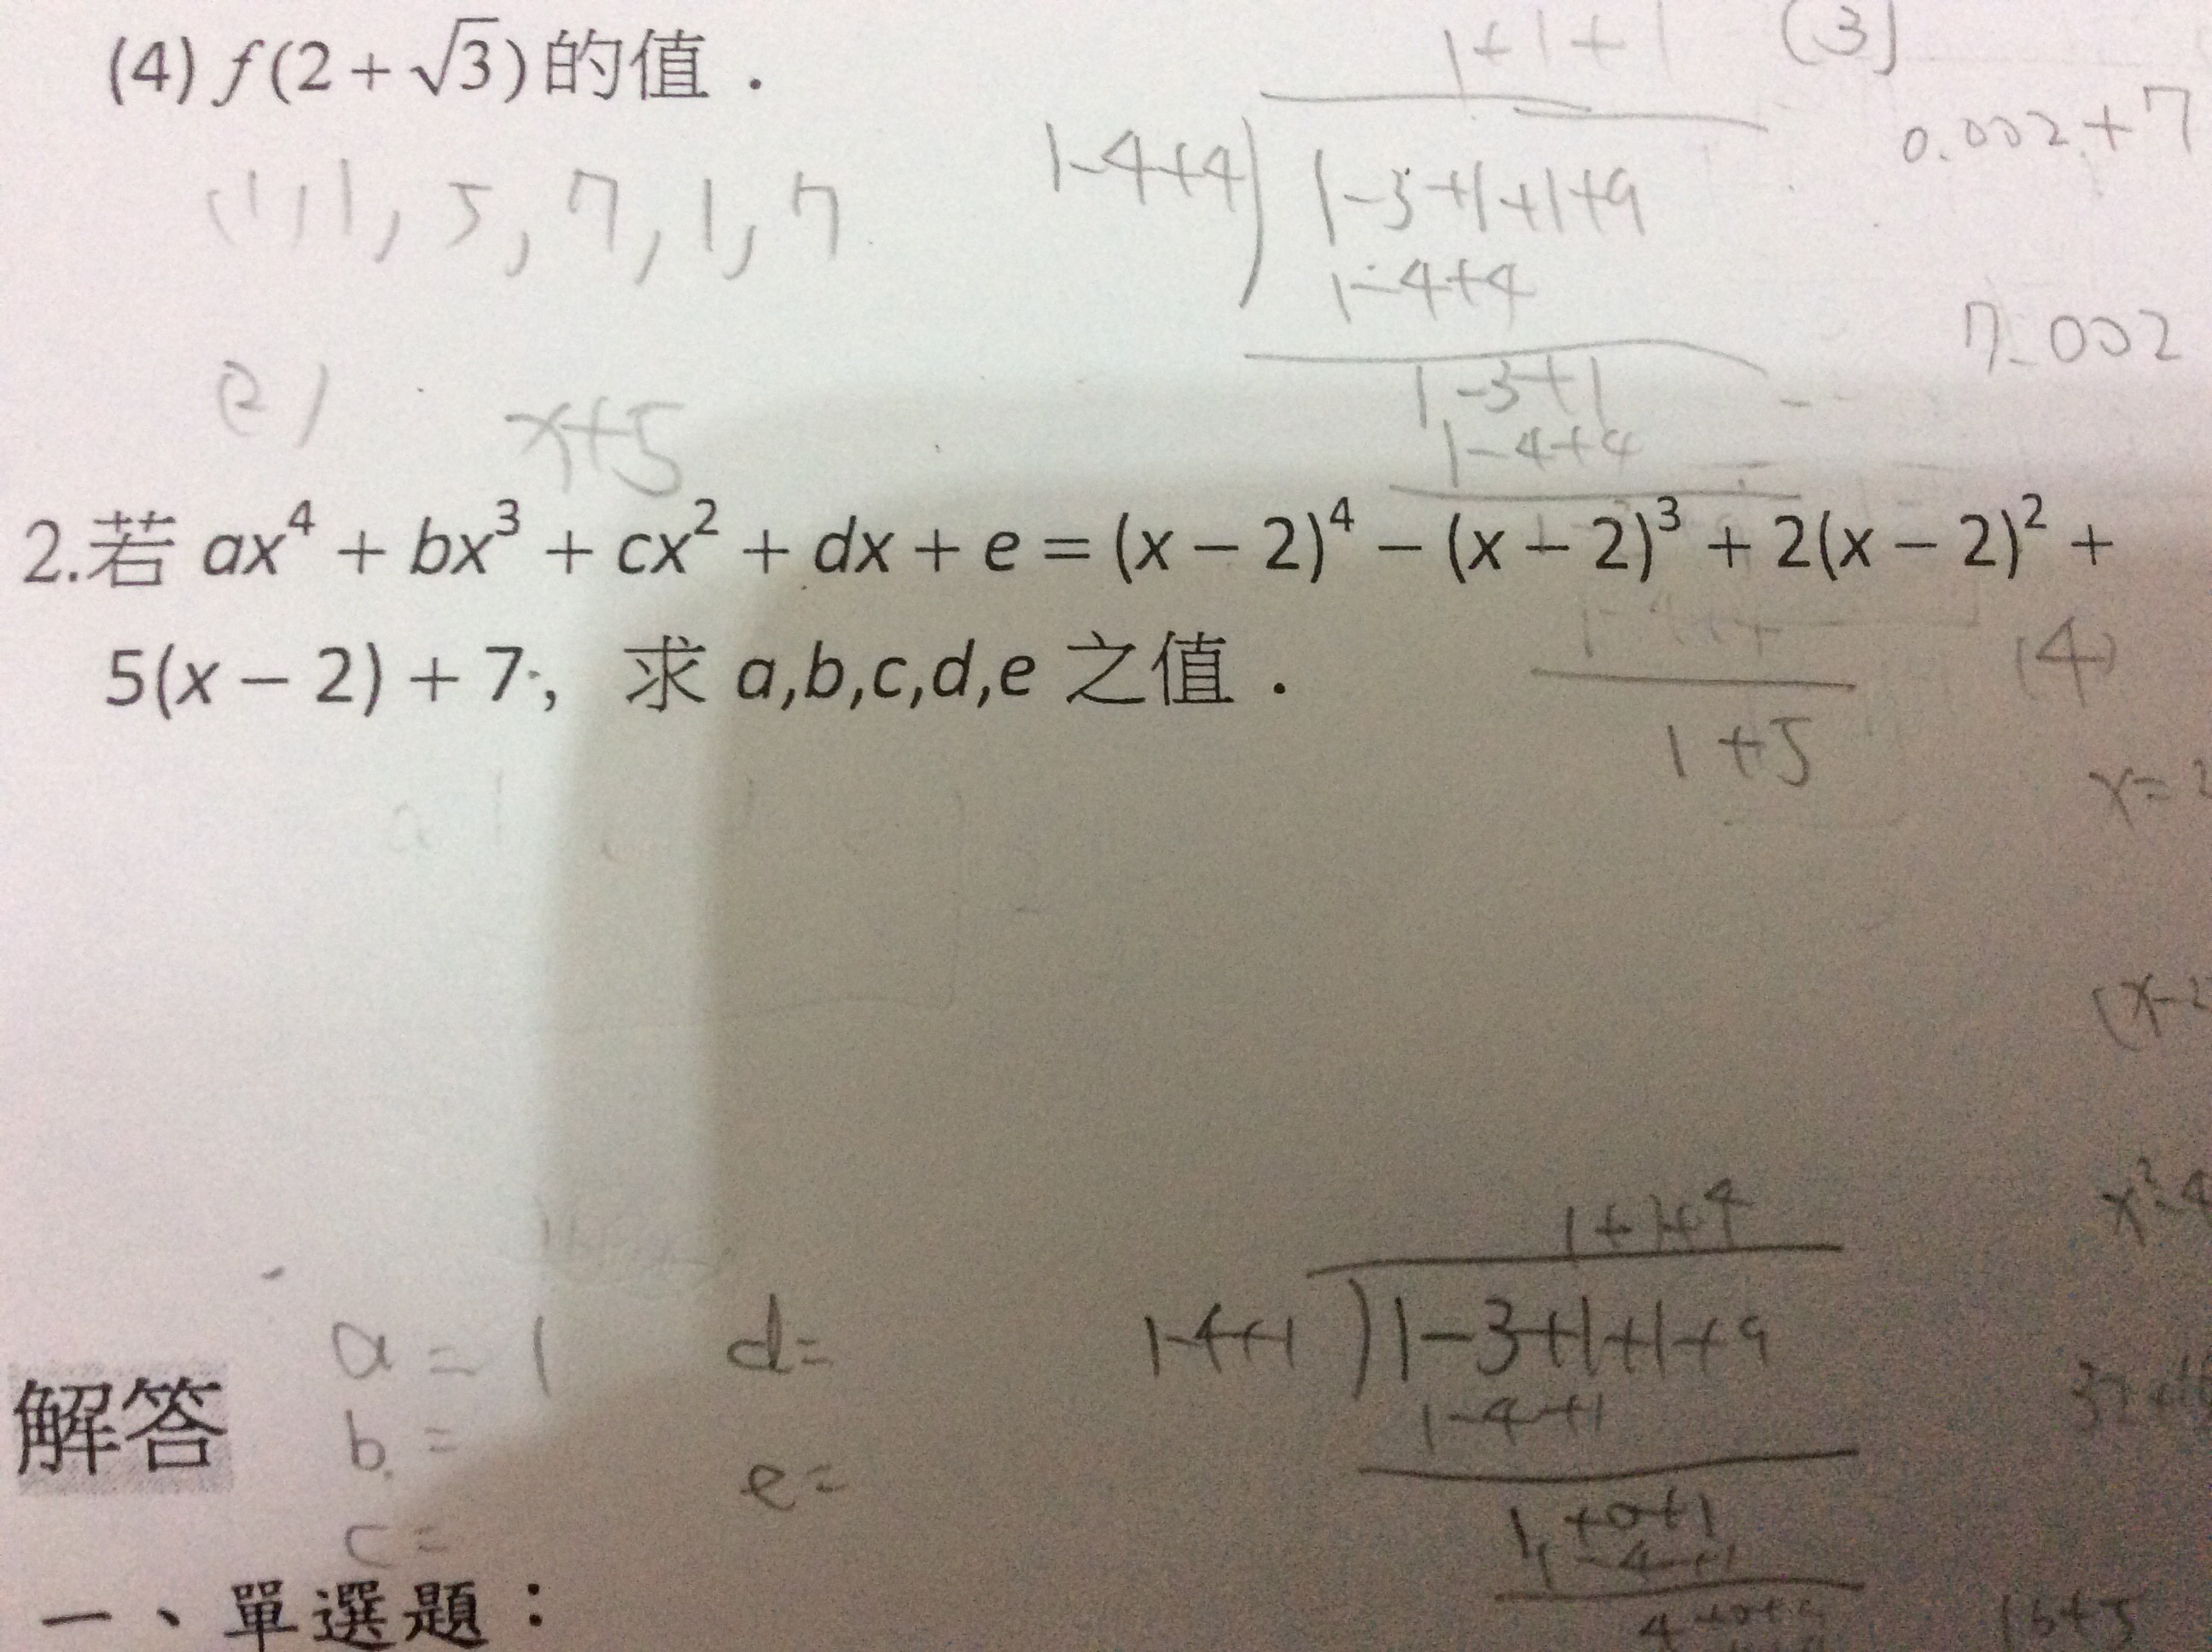 (4) f(2 + √3) 的值．
(1) 1, 5, 7, 1, 7
(2) x+5
1+1+1
1-4+4 ) 1-3+1+1+9
1-4+4
1-3+1
1-4+4
1+5
(3)
0.002+7
7.002
2.若 ax⁴ + bx³ + cx² + dx + e = (x − 2)⁴ − (x − 2)³ + 2(x − 2)² +
5(x − 2) + 7，求 a,b,c,d,e 之值．
(4)
x=2
(x-2
x²-4
1+1+4
1-4+1 ) 1-3+1+1+9
1-4+1
1+0+1
1-4+1
16+5
a = 1 d=
b = e=
c=
解答
一、單選題：